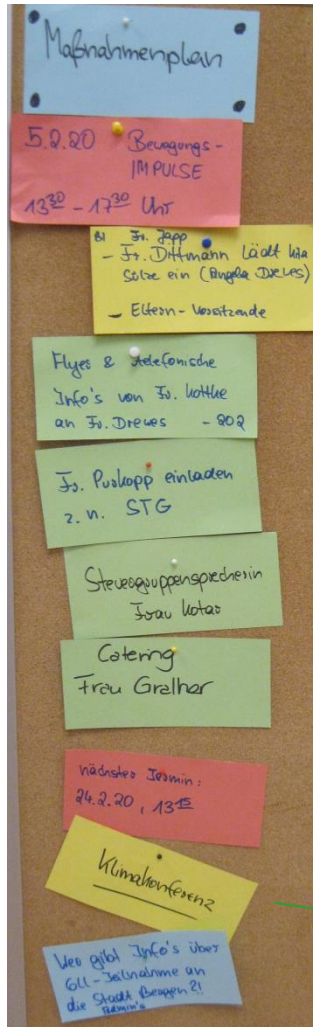 Maßnahmenplan
5.2.20 Bewegungs-
IMPULSE
13 30 - 17 30 Uhr
Fr. Japp
- Fr. Dittmann lädt Kita
Sülze ein (Angela Drewes)
- Eltern-Vorsitzende
Flyer & telefonische
Info's von Fr. Kottke
an Fr. Drewes - 202
Fr. Puskopp einladen
z. n. STG
Steuergruppensprecherin
Frau Kotar
Catering
Frau Gralher
nächster Termin:
24.2.20, 13 15
Klimakonferenz
Wer gibt Info's über
GU-Teilnahme an
die Stadt Bergen?!
Termin's